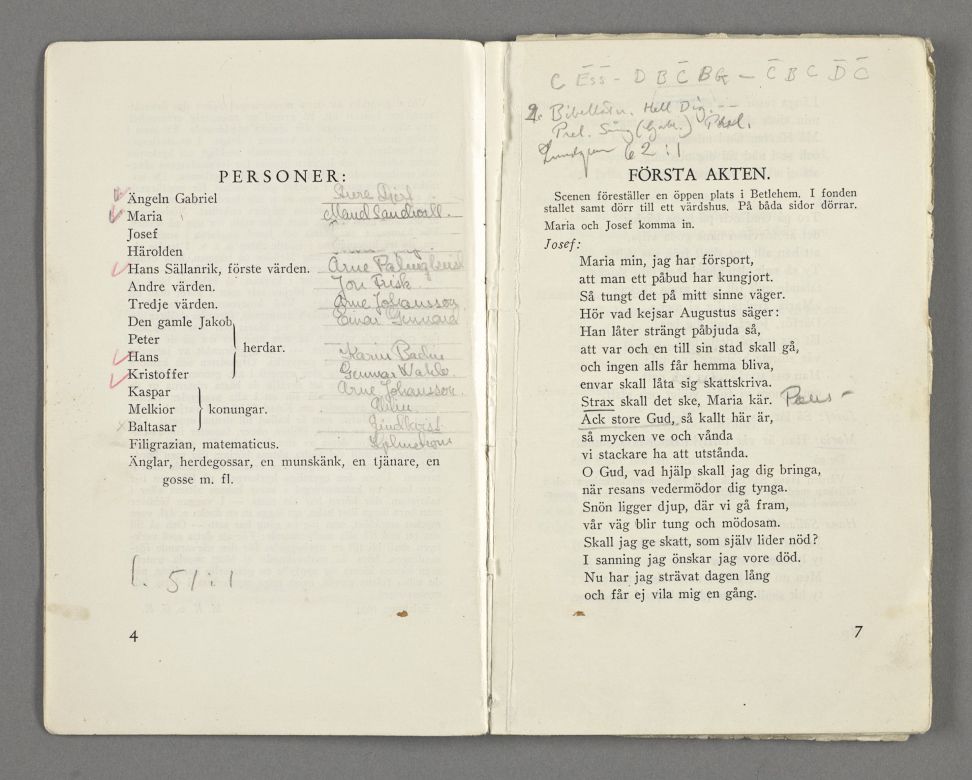 PERSONER:
Ängeln Gabriel
Maria Maud Sandwall.
Josef
Härolden
Hans Sällanrik, förste värden. Arne
Andre värden. Jon Frisk
Tredje värden. Arne Johansson
Den gamle Jakob Einar Gennard
Peter
herdar.
Hans Karin Badin
Kristoffer Gunnar Wahle
Kaspar Arne Johansson
Melkior konungar.
Baltasar Lindkvist
Filigrazian, matematicus. Holmström
Änglar, herdegossar, en munskänk, en tjänare, en
gosse m. fl.
1. 51:1
4
C Ess - D B C B G - C B C D C
2. Hell Dig. --
Prel. Sång (Gabr.)
Lundgren 62:1
FÖRSTA AKTEN.
Scenen föreställer en öppen plats i Betlehem. I fonden
stallet samt dörr till ett värdshus. På båda sidor dörrar.
Maria och Josef komma in.
Josef:
Maria min, jag har försport,
att man ett påbud har kungjort.
Så tungt det på mitt sinne väger.
Hör vad kejsar Augustus säger:
Han låter strängt påbjuda så,
att var och en till sin stad skall gå,
och ingen alls får hemma bliva,
envar skall låta sig skattskriva.
Strax skall det ske, Maria kär. Paus -
Ack store Gud, så kallt här är,
så mycken ve och vånda
vi stackare ha att utstånda.
O Gud, vad hjälp skall jag dig bringa,
när resans vedermödor dig tynga.
Snön ligger djup, där vi gå fram,
vår väg blir tung och mödosam.
Skall jag ge skatt, som själv lider nöd?
I sanning jag önskar jag vore död.
Nu har jag strävat dagen lång
och får ej vila mig en gång.
7